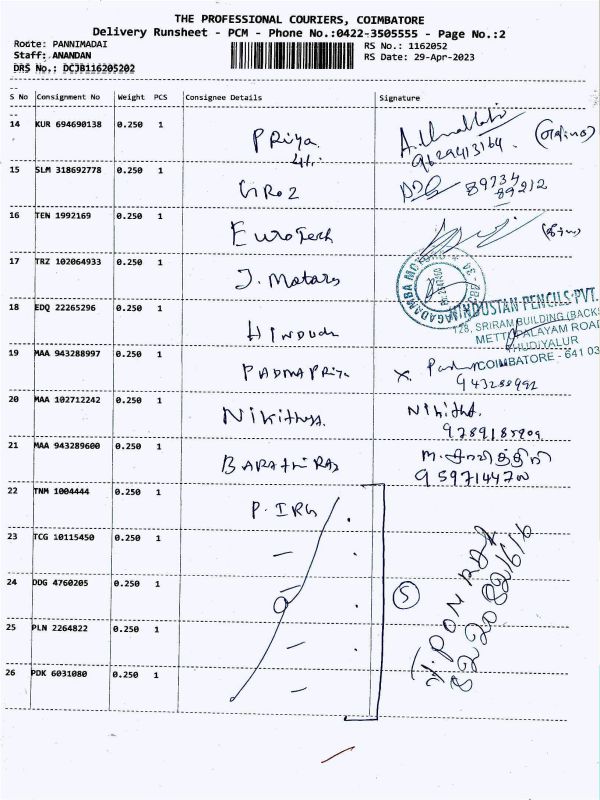 THE PROFESSIONAL COURIERS, COIMBATORE
Delivery Runsheet - PCM - Phone No.:0422-3505555 - Page No.:2
Route: PANNIMADAI
Staff: ANANDAN
DRS No.: DCJB116205202
RS No.: 1162052
RS Date: 29-Apr-2023
S No Consignment No Weight PCS Consignee Details Signature
14 KUR 694690138 0.250 1 Priya
9629413164
15 SLM 318692778 0.250 1
89734
89212
16 TEN 1992169 0.250 1 EuroTech
17 TRZ 102064933 0.250 1 J. Motars
JAGADAMBA MOTORS
18 EDQ 22265296 0.250 1 HINDUSTAN PENCILS PVT.
128, SRIRAM BUILDING (BACKS
METTUPALAYAM ROAD
THUDIYALUR
COIMBATORE - 641 03
19 MAA 943288997 0.250 1 PADMAPRIYA
20 MAA 102712242 0.250 1
21 MAA 943289600 0.250 1 BARATHIRAJ
9597144700
22 TNM 1004444 0.250 1
23 TCG 10115450 0.250 1
24 DDG 4760205 0.250 1
25 PLN 2264822 0.250 1
26 PDK 6031080 0.250 1
5
PONRAJ
8220821616